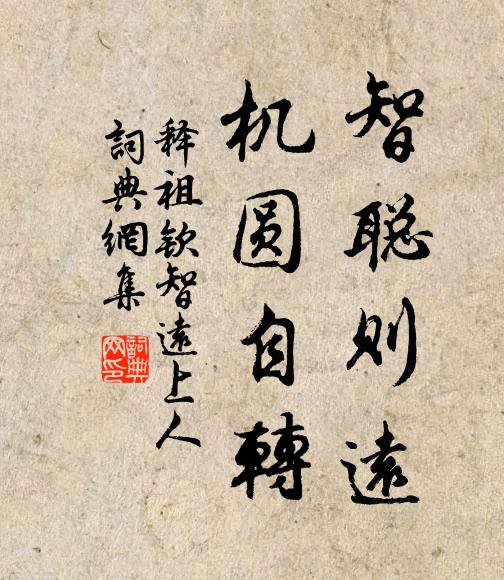 智聪则遠
机圆自轉
释祖钦智遠上人
詞典網集
詞典网印